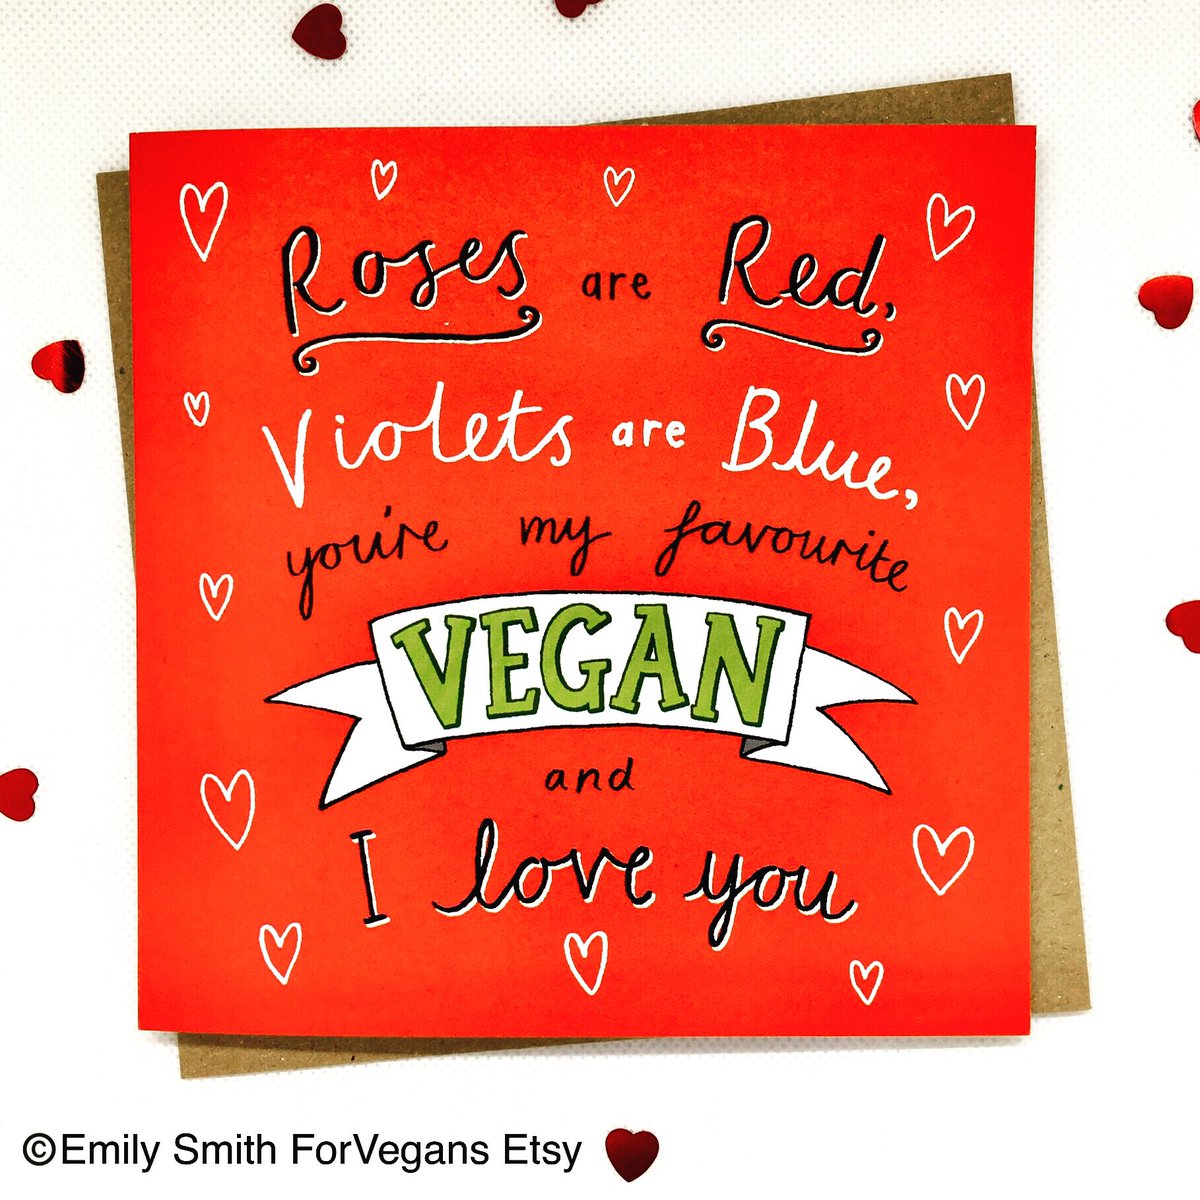 Roses are Red,
Violets are Blue,
you're my favourite
VEGAN
and
I love you
©Emily Smith ForVegans Etsy